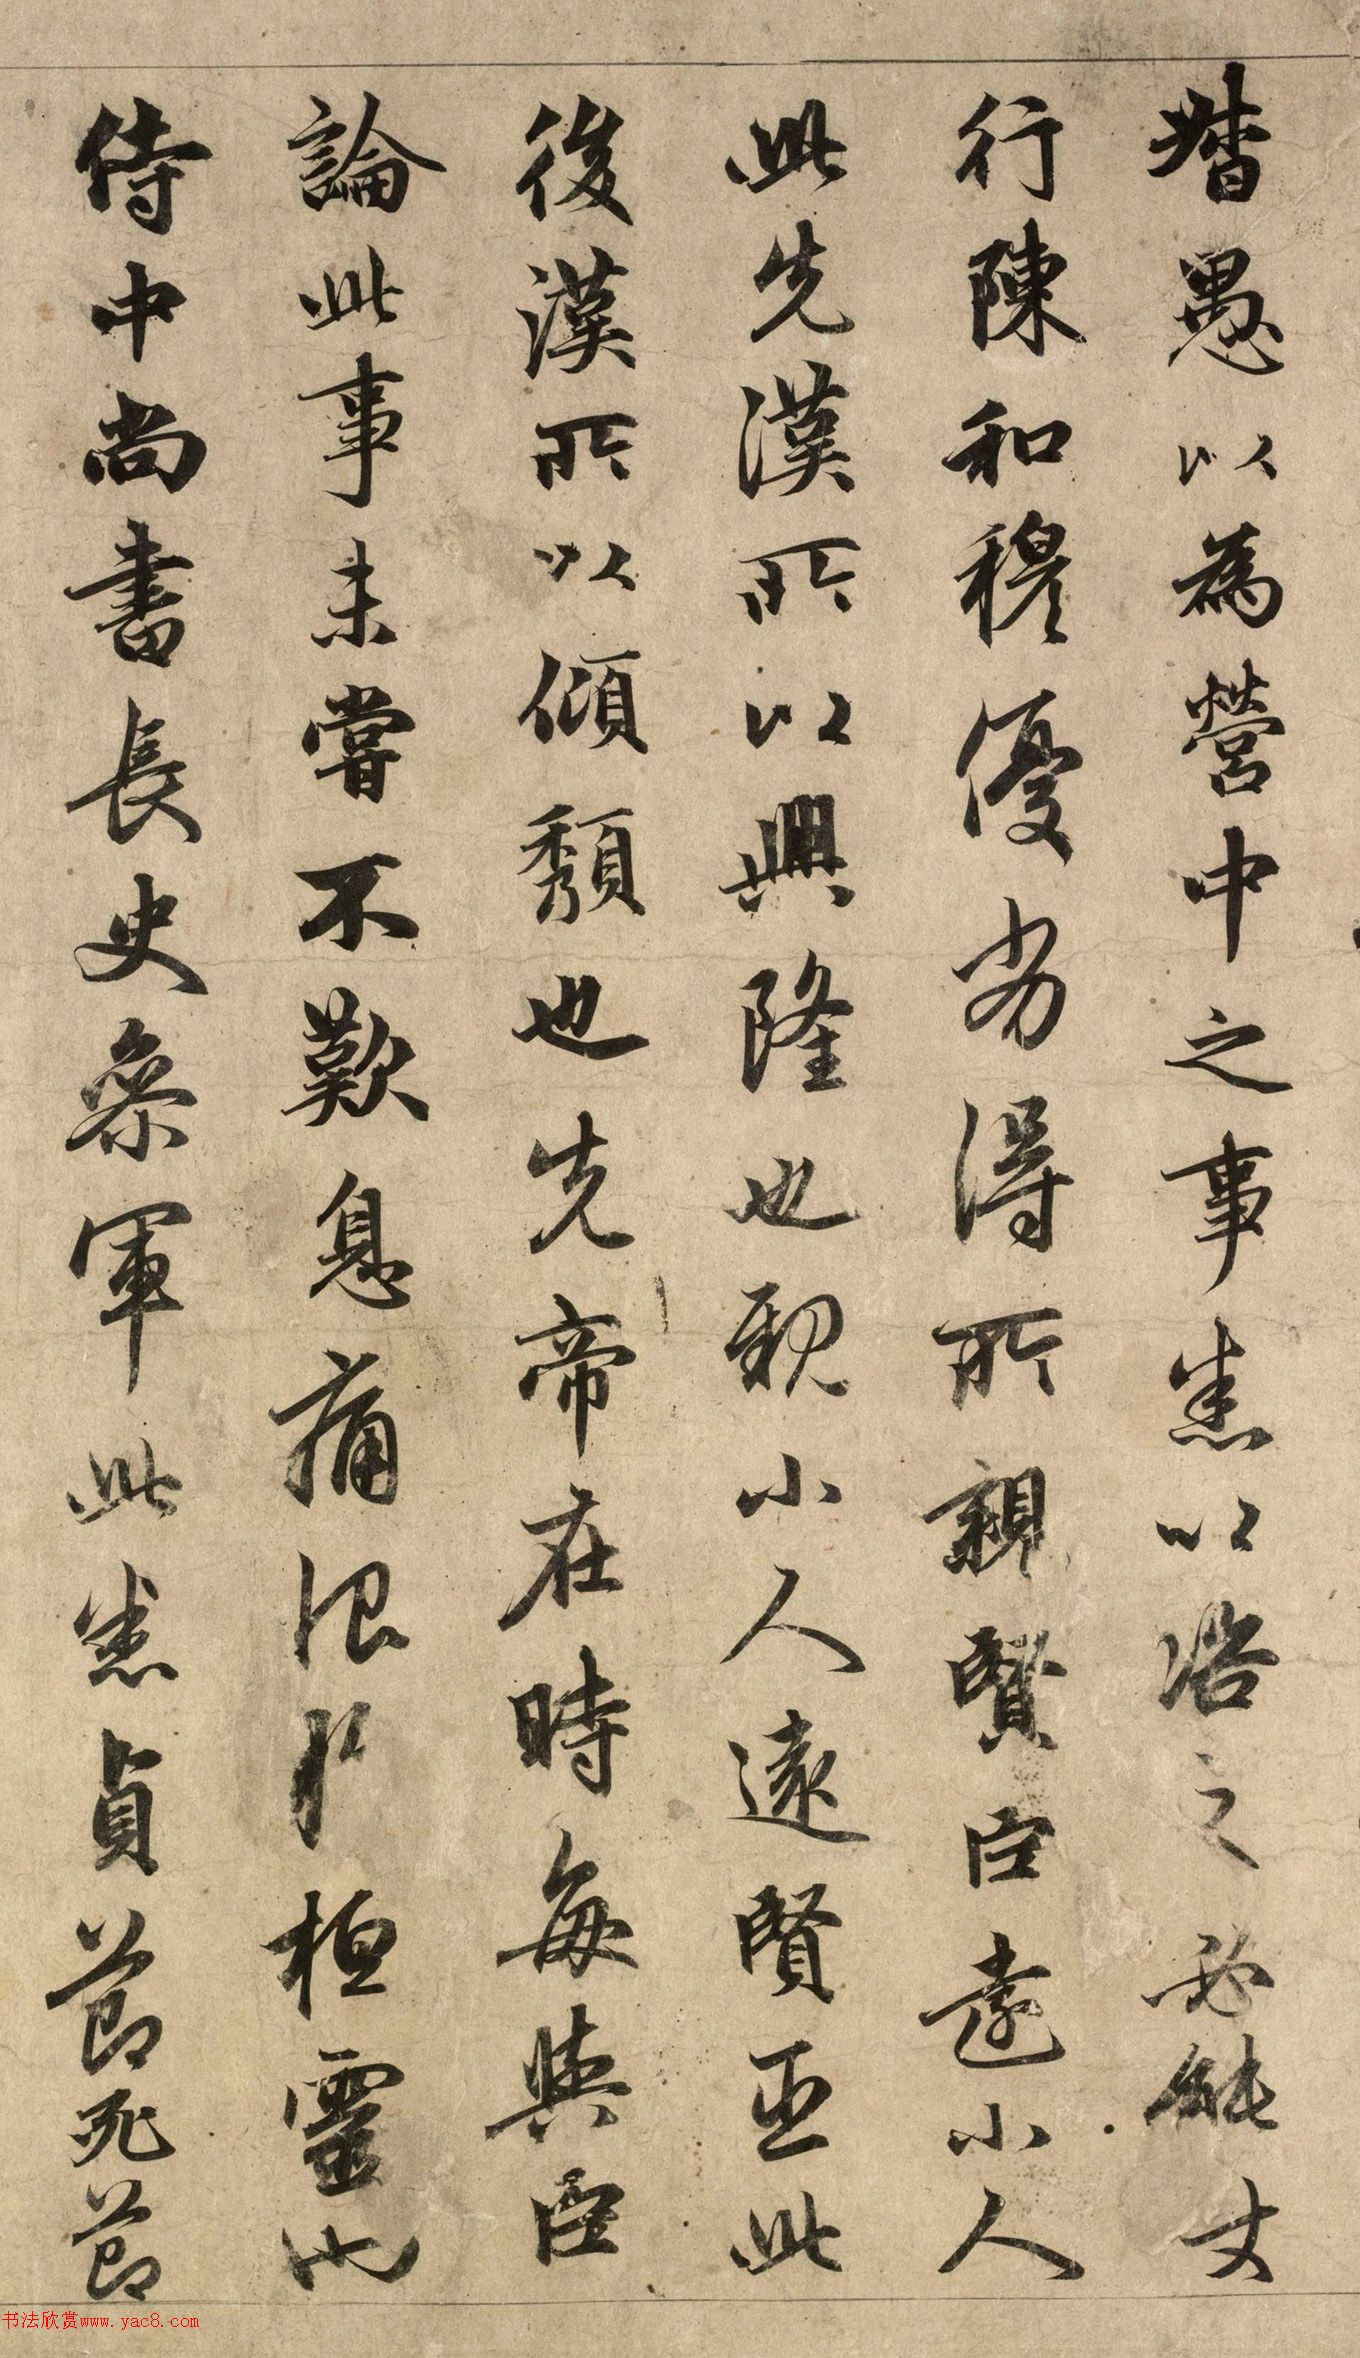 督愚以為營中之事悉以咨之必能丈
行陳和穆優劣得所親賢臣遠小人
此先漢所以興隆也親小人遠賢臣此
後漢所以傾頹也先帝在時每與臣
論此事未嘗不歎息痛恨於桓靈也
侍中尚書長史參軍此悉貞節死節
书法欣赏www.yac8.com